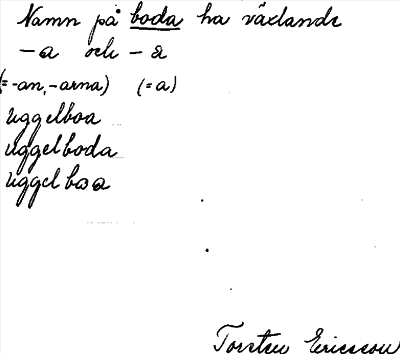 Namn på boda ha växlande
-a och -a
(=-an,-arna) (=a)
uggelboa
uggelboda
uggelboa
Torsten Ericsson